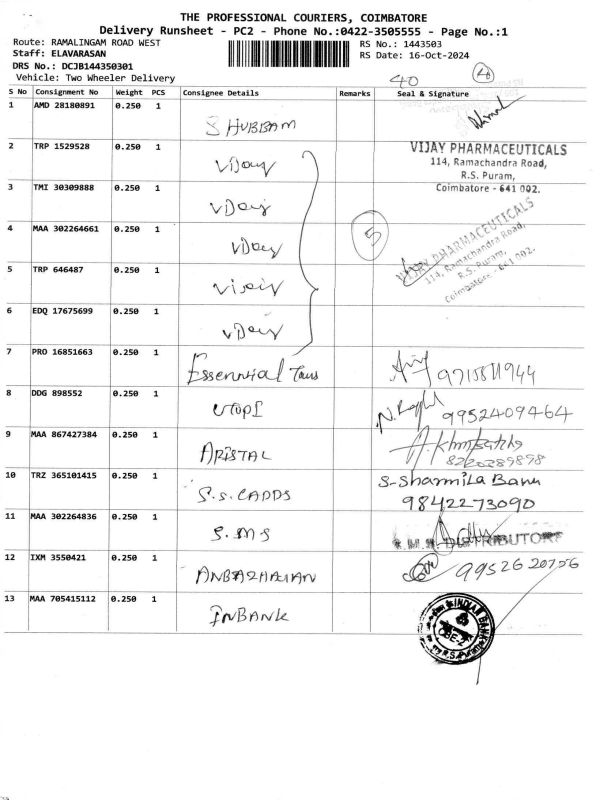 THE PROFESSIONAL COURIERS, COIMBATORE
Delivery Runsheet - PC2 - Phone No.:0422-3505555 - Page No.:1
Route: RAMALINGAM ROAD WEST
Staff: ELAVARASAN
DRS No.: DCJB144350301
Vehicle: Two Wheeler Delivery
RS No.: 1443503
RS Date: 16-Oct-2024
40
S No Consignment No Weight PCS Consignee Details Remarks Seal & Signature
1 AMD 28180891 0.250 1 SHUBBAM
2 TRP 1529528 0.250 1 VIJAY PHARMACEUTICALS
114, Ramachandra Road,
R.S. Puram,
Coimbatore - 641 002.
3 TMI 30309888 0.250 1
4 MAA 302264661 0.250 1 5 VIJAY PHARMACEUTICALS
114, Ramachandra Road,
R.S. Puram,
Coimbatore - 641 002.
5 TRP 646487 0.250 1
6 EDQ 17675699 0.250 1
7 PRO 16851663 0.250 1 Essennial Tans
8 DDG 898552 0.250 1 UTOPI 9952409464
9 MAA 867427384 0.250 1 ARISTAL
10 TRZ 365101415 0.250 1 S.S. CADDS S-Sharmila Banu
9842273090
11 MAA 302264836 0.250 1 S.M.S DISTRIBUTORS
12 IXM 3550421 0.250 1 ANBAZHAGAN
13 MAA 705415112 0.250 1 INBANK INDIAN BANK
R.S. Puram